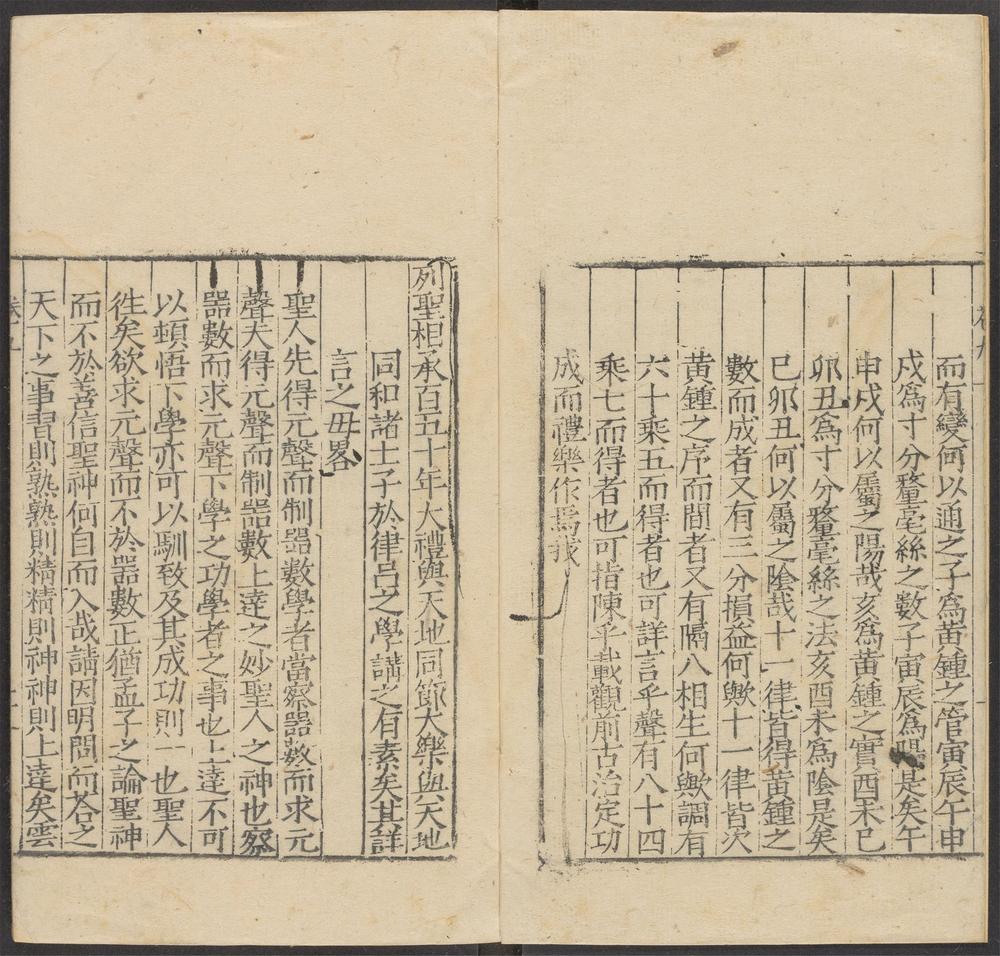 而有變何以通之子爲黃鍾之管寅辰午申
戌爲寸分釐毫絲之數子寅辰爲陽是矣午
申戌何以屬之陽哉亥爲黃鍾之實酉未巳
卯丑爲寸分釐毫絲之法亥酉未爲陰是矣
巳卯丑何以屬之陰哉十一律皆得黃鍾之
數而成者又有三分損益何歟十一律皆次
黃鍾之序而間者又有隔八相生何歟調有
六十乘五而得者也可詳言乎聲有八十四
乘七而得者也可指陳乎載觀前古治定功
成而禮樂作焉我
列聖相承百五十年大禮與天地同節大樂與天地
同和諸士子於律呂之學講之有素矣其詳
言之毋畧
聖人先得元聲而制器數學者當察器數而求元
聲夫得元聲而制器數上達之妙聖人之神也察
器數而求元聲下學之功學者之事也上達不可
以頓悟下學亦可以馴致及其成功則一也聖人
徃矣欲求元聲而不於器數正猶孟子之論聖神
而不於善信聖神何自而入哉請因明問而荅之
天下之事習則熟熟則精精則神神則上達矣雲